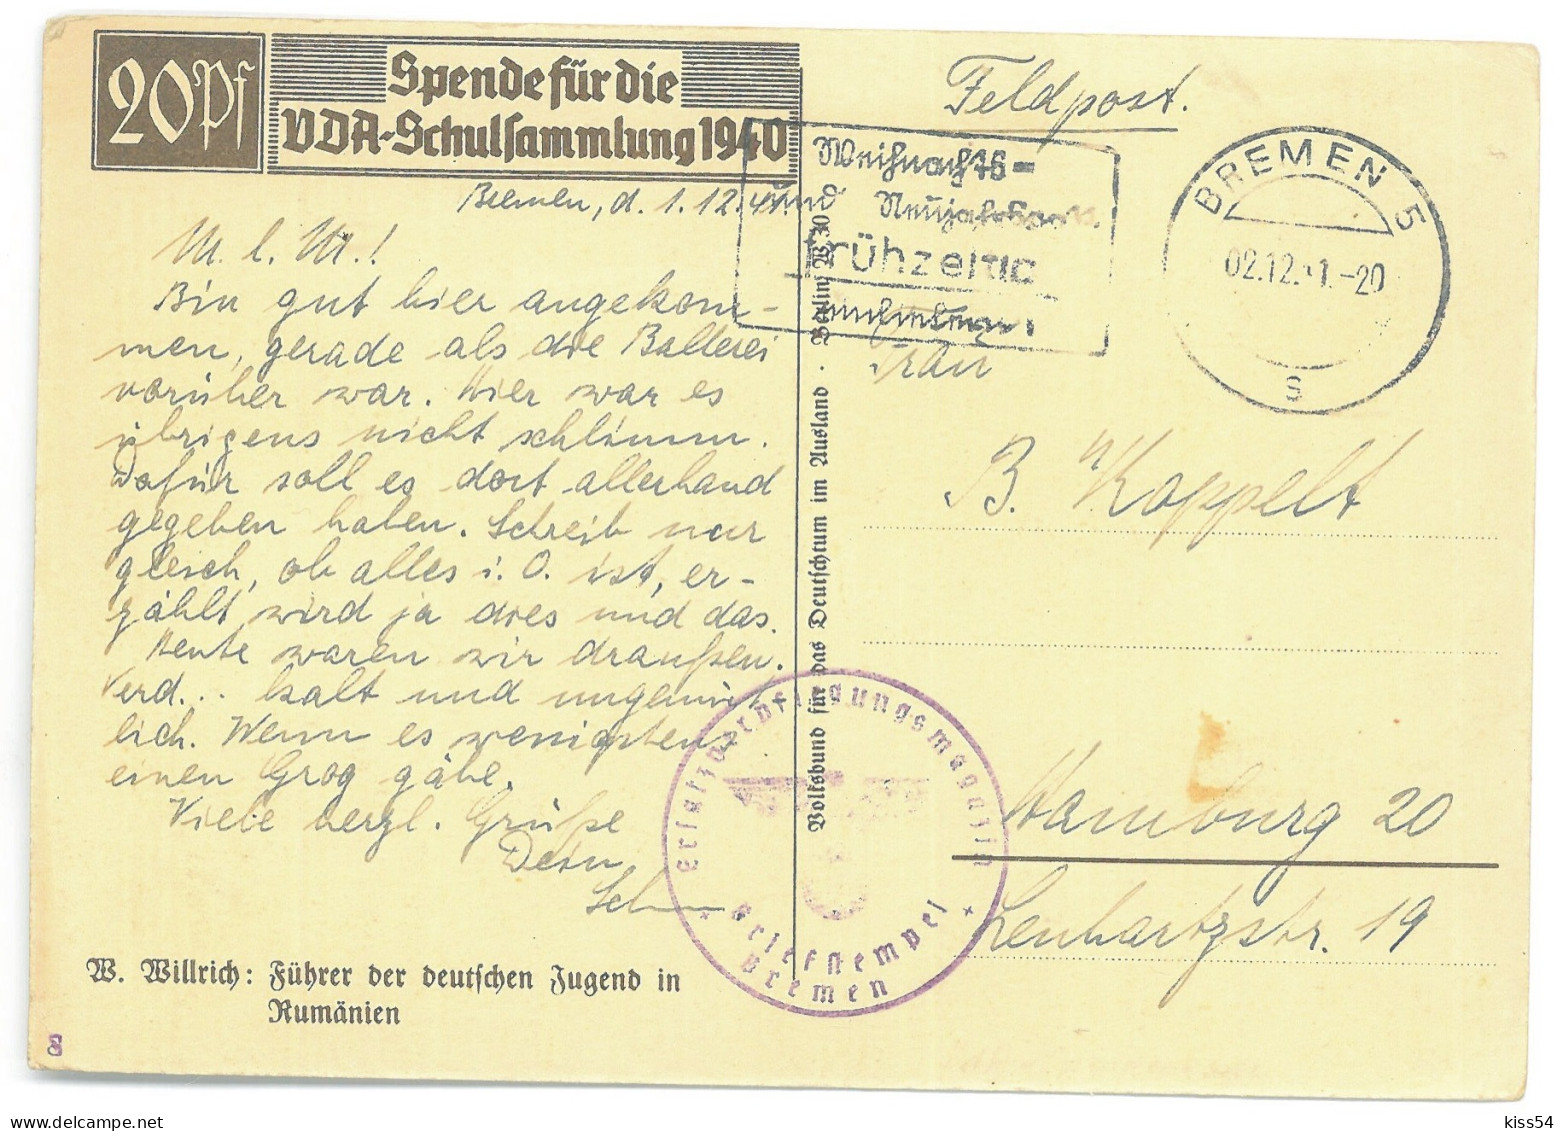 20Pf
Spende für die
VDA-Schulsammlung 1940
Feldpost.
Weihnachts=
und Neujahrspost
frühzeitig
BREMEN 5
02.12.41.-20
s
Bremen, d. 1.12.41.
M. l. M.!
Bin gut hier angekom-
men, gerade als die Ballerei
vorüber war. Hier war es
übrigens nicht schlimm.
Dafür soll es dort allerhand
gegeben haben. Schreib nur
gleich, ob alles i. O. ist, er-
zählt wird ja dies und das.
Heute waren wir draußen.
Verd... kalt und ungemüt-
lich. Wenn es wenigstens
einen Grog gäbe.
Viele herzl. Grüße
Dein
Frau
B. Koppelt
Hamburg 20
Lenhartzstr. 19
Volksbund für das Deutschtum im Ausland · Berlin W 30
Ersatzverpflegungsmagazin
Briefstempel
Bremen
W. Willrich: Führer der deutschen Jugend in
Rumänien
8
delcampe.net
kiss54